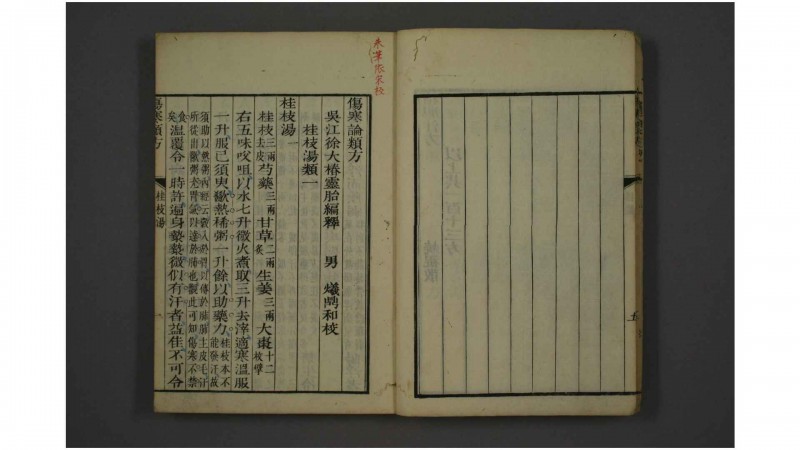 朱筆張宗校
傷寒論類方
吳江徐大椿靈胎編釋 男 爔鼎和校
桂枝湯類一
桂枝湯一
桂枝三兩去皮芍藥三兩甘草二兩炙生姜三兩大棗十二枚擘
右五味㕮咀以水七升微火煮取三升去滓適寒溫服
一升服已須臾歠熱稀粥一升餘以助藥力桂枝本不能發汗故
須助以熱粥內經云穀入於胃以傳於肺肺主皮毛汗
所從出歠粥充胃氣以達於肺也觀此可知傷寒不禁
食矣溫覆令一時許遍身漐漐微似有汗者益佳不可令
傷寒類方
桂枝湯